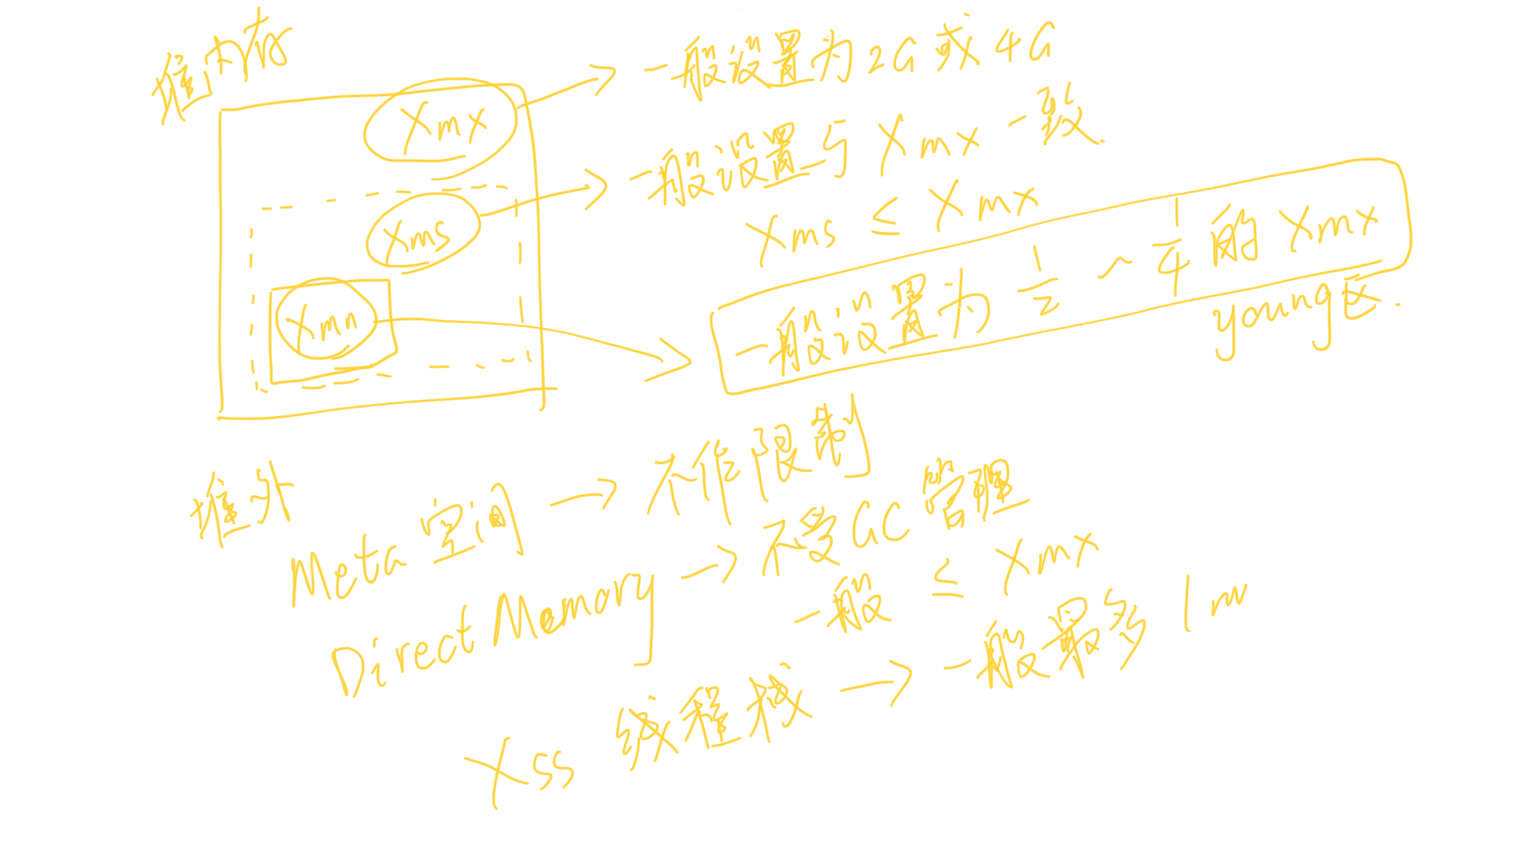 堆内存
Xmx
一般设置为2G或4G
Xms
一般设置与Xmx一致.
Xms ≤ Xmx
Xmn
一般设置为 1/2 ~ 1/4 的 Xmx
young区.
堆外
Meta 空间 → 不作限制
Direct Memory → 不受GC管理
一般 ≤ Xmx
Xss 线程栈 → 一般最多 1m